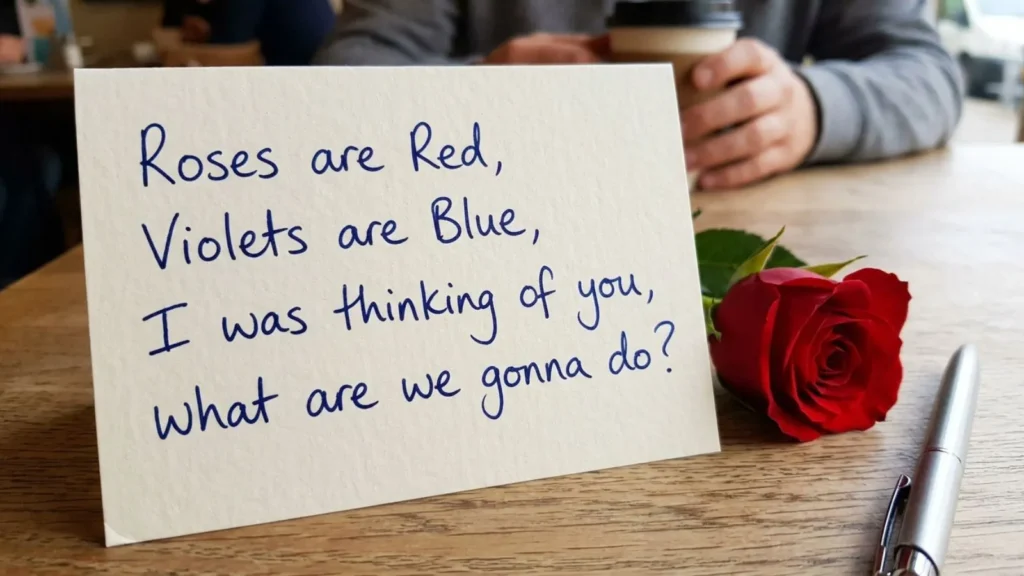 Roses are Red,
Violets are Blue,
I was thinking of you,
what are we gonna do?